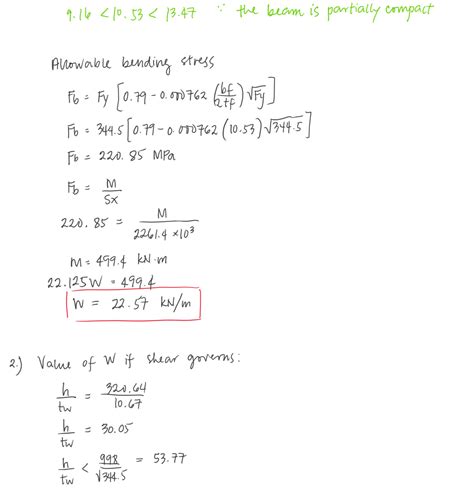 9.16 < 10.53 < 13.47 ∵ the beam is partially compact
Allowable bending stress
Fb = Fy [0.79 - 0.000762 (bf/2tf) √Fy]
Fb = 344.5 [0.79 - 0.000762 (10.53) √344.5]
Fb = 220.85 MPa
Fb = M/Sx
220.85 = M/2261.4 ×10³
M = 499.4 kN·m
22.125W = 499.4
W = 22.57 kN/m
2.) Value of W if shear governs:
h/tw = 320.64/10.67
h/tw = 30.05
h/tw < 998/√344.5 = 53.77